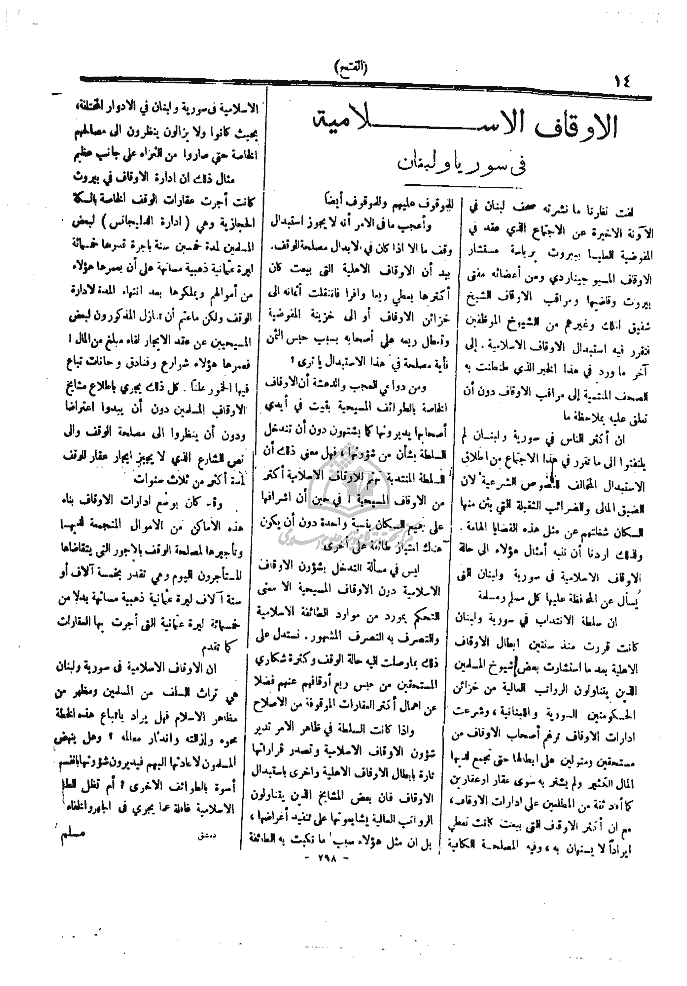 (الفتح)
١٤
الاوقاف الاسلامية
فى سوريا ولبنان
لفت نظرنا ما نشرته صحف لبنان في
الآونة الاخيرة عن الاجتماع الذي عقد في
المفوضية العليا ببيروت برياسة مستشار
الاوقاف المسيو جيناردي ومن أعضائه مفتى
بيروت وقاضيها ومراقب الاوقاف الشيخ
شفيق الملك وغيرهم من الشيوخ الموظفين
فتقرر فيه استبدال الاوقاف الاسلامية . إلى
آخر ما ورد في هذا الخبر الذي طنطنت به
الصحف المنتمية إلى مراقب الاوقاف دون أن
تعلق عليه بملاحظة ما
ان أكثر الناس في سورية ولبنان لم
يلتفتوا الى ما تقرر في هذا الاجتماع من اطلاق
الاستبدال المخالف للنصوص الشرعية لان
الضيق المالي والضرائب الثقيلة التي يئن منها
السكان شغلتهم عن مثل هذه القضايا الهامة .
ولذلك اردنا أن ننبه أمثال هؤلاء الى حالة
الاوقاف الاسلامية في سورية ولبنان التى
يُسأل عن المحافظة عليها كل مسلم ومسلمة
ان سلطة الانتداب في سورية ولبنان
كانت قررت منذ سنتين ابطال الاوقاف
الاهلية بعد ما استشارت بعض شيوخ المسلمين
الذين يتناولون الرواتب العالية من خزائن
الحكومتين السورية واللبنانية ، وشرعت
ادارات الاوقاف ترغم أصحاب الاوقاف من
مستحقين ومتولين على ابطالها حتى تجمع لديها
المال الكثير ولم يشتر به سوى عقار او عقارين
كما أكد ثقة من المطلعين على ادارات الاوقاف،
مع ان أكثر الاوقاف التى بيعت كانت تعطي
ايراداً لا يستهان به ، وفيه المصلحة الكافية
للموقوف عليهم وللموقوف أيضاً
وأعجب ما فى الامر أنه لا يجوز استبدال
وقف ما الا اذا كان في الابدال مصلحة للوقف.
بيد أن الاوقاف الاهلية التى بيعت كان
أكثرها يعطي ريعا وافرا فانتقلت أثمانه الى
خزائن الاوقاف أو الى خزينة المفوضية
وتعطل ريعه على أصحابه بسبب حبس الثمن
فأية مصلحة في هذا الاستبدال يا ترى ؟
ومن دواعي العجب والدهشة أن الاوقاف
الخاصة بالطوائف المسيحية بقيت في أيدي
أصحابها يديرونها كما يشتهون دون أن تتدخل
السلطة بشأن من شؤونها ، فهل معنى ذلك أن
السلطة المنتدبة تهتم للاوقاف الاسلامية أكثر
من الاوقاف المسيحية ؟ في حين أن اشرافها
على جميع السكان بنسبة واحدة دون أن يكون
هناك امتياز طائفة على اخرى.
ليس في مسألة التدخل بشؤون الاوقاف
الاسلامية دون الاوقاف المسيحية الا معنى
التحكم بمورد من موارد الطائفة الاسلامية
والتصرف به التصرف المشهور . نستدل على
ذلك بما وصلت اليه حالة الوقف وكثرة شكاوى
المستحقين من حبس ريع أوقافهم عنهم فضلا
عن اهمال أكثر العقارات الموقوفة من الاصلاح
واذا كانت السلطة في ظاهر الامر تدير
شؤون الاوقاف الاسلامية وتصدر قراراتها
تارة بابطال الاوقاف الاهلية واخرى باستبدال
الاوقاف فان بعض المشايخ الذين يتناولون
الرواتب العالية يشايعونها على تنفيذ أغراضها ،
بل ان مثل هؤلاء سبب ما نكبت به الطائفة
الاسلامية فى سورية ولبنان في الادوار المختلفة،
بحيث كانوا ولا يزالون ينظرون الى مصالحهم
الخاصة حتى صاروا من الثراء على جانب عظيم
مثال ذلك ان ادارة الاوقاف في بيروت
كانت أجرت عقارات الوقف الخاصة بالسكة
الحجازية وهي (ادارة الديليجانس) لبعض
المسلمين لمدة خمسين سنة باجرة قدرها خمسمائة
ليرة عثمانية ذهبية مسانهة على أن يعمرها هؤلاء
من أموالهم ويملكوها بعد انتهاء المدة لادارة
الوقف ولكن ما عتم أن تنازل المذكورون لبعض
المسيحيين عن عقد الايجار لقاء مبلغ من المال !
فعمرها هؤلاء شوارع وفنادق و حانات تباع
فيها الخمور علناً . كل ذلك يجري باطلاع مشايخ
الاوقاف المسلمين دون أن يبدوا اعتراضا
ودون أن ينظروا الى مصلحة الوقف والى
نص الشارع الذي لا يجيز ايجار عقار الوقف
لمدة أكثر من ثلاث سنوات
وقد كان بوسع ادارات الاوقاف بناء
هذه الاماكن من الاموال المتجمعة لديها
وتأجيرها لمصلحة الوقف بالاجور التي يتقاضاها
المستأجرون اليوم وهي تقدر بخمسة آلاف أو
ستة آلاف ليرة عثمانية ذهبية مسانهة بدلا من
خمسمائة ليرة عثمانية التى أجرت بها العقارات
كما تقدم
ان الاوقاف الاسلامية فى سورية ولبنان
هي تراث السلف من المسلمين ومظهر من
مظاهر الاسلام فهل يراد باتباع هذه الخطة
محوه وإزالته واندثار معالمه ؟ وهل ينهض
المسلمون لاعادتها اليهم فيديرون شؤونها بانفسهم
أسوة بالطوائف الاخرى ؟ أم تظل الطائفة
الاسلامية غافلة عما يجري في الجهر والخفاء
دمشق
مسلم
- ٢٩٨ -